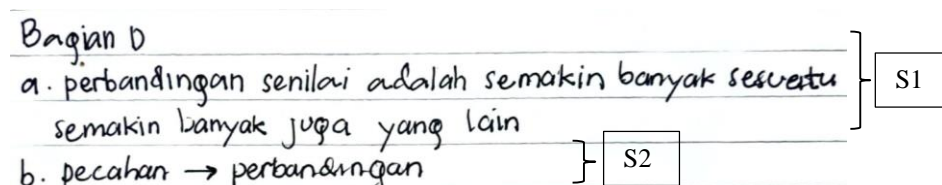 Bagian D
a. perbandingan senilai adalah semakin banyak sesuatu
semakin banyak juga yang lain
b. pecahan → perbandingan
S1
S2